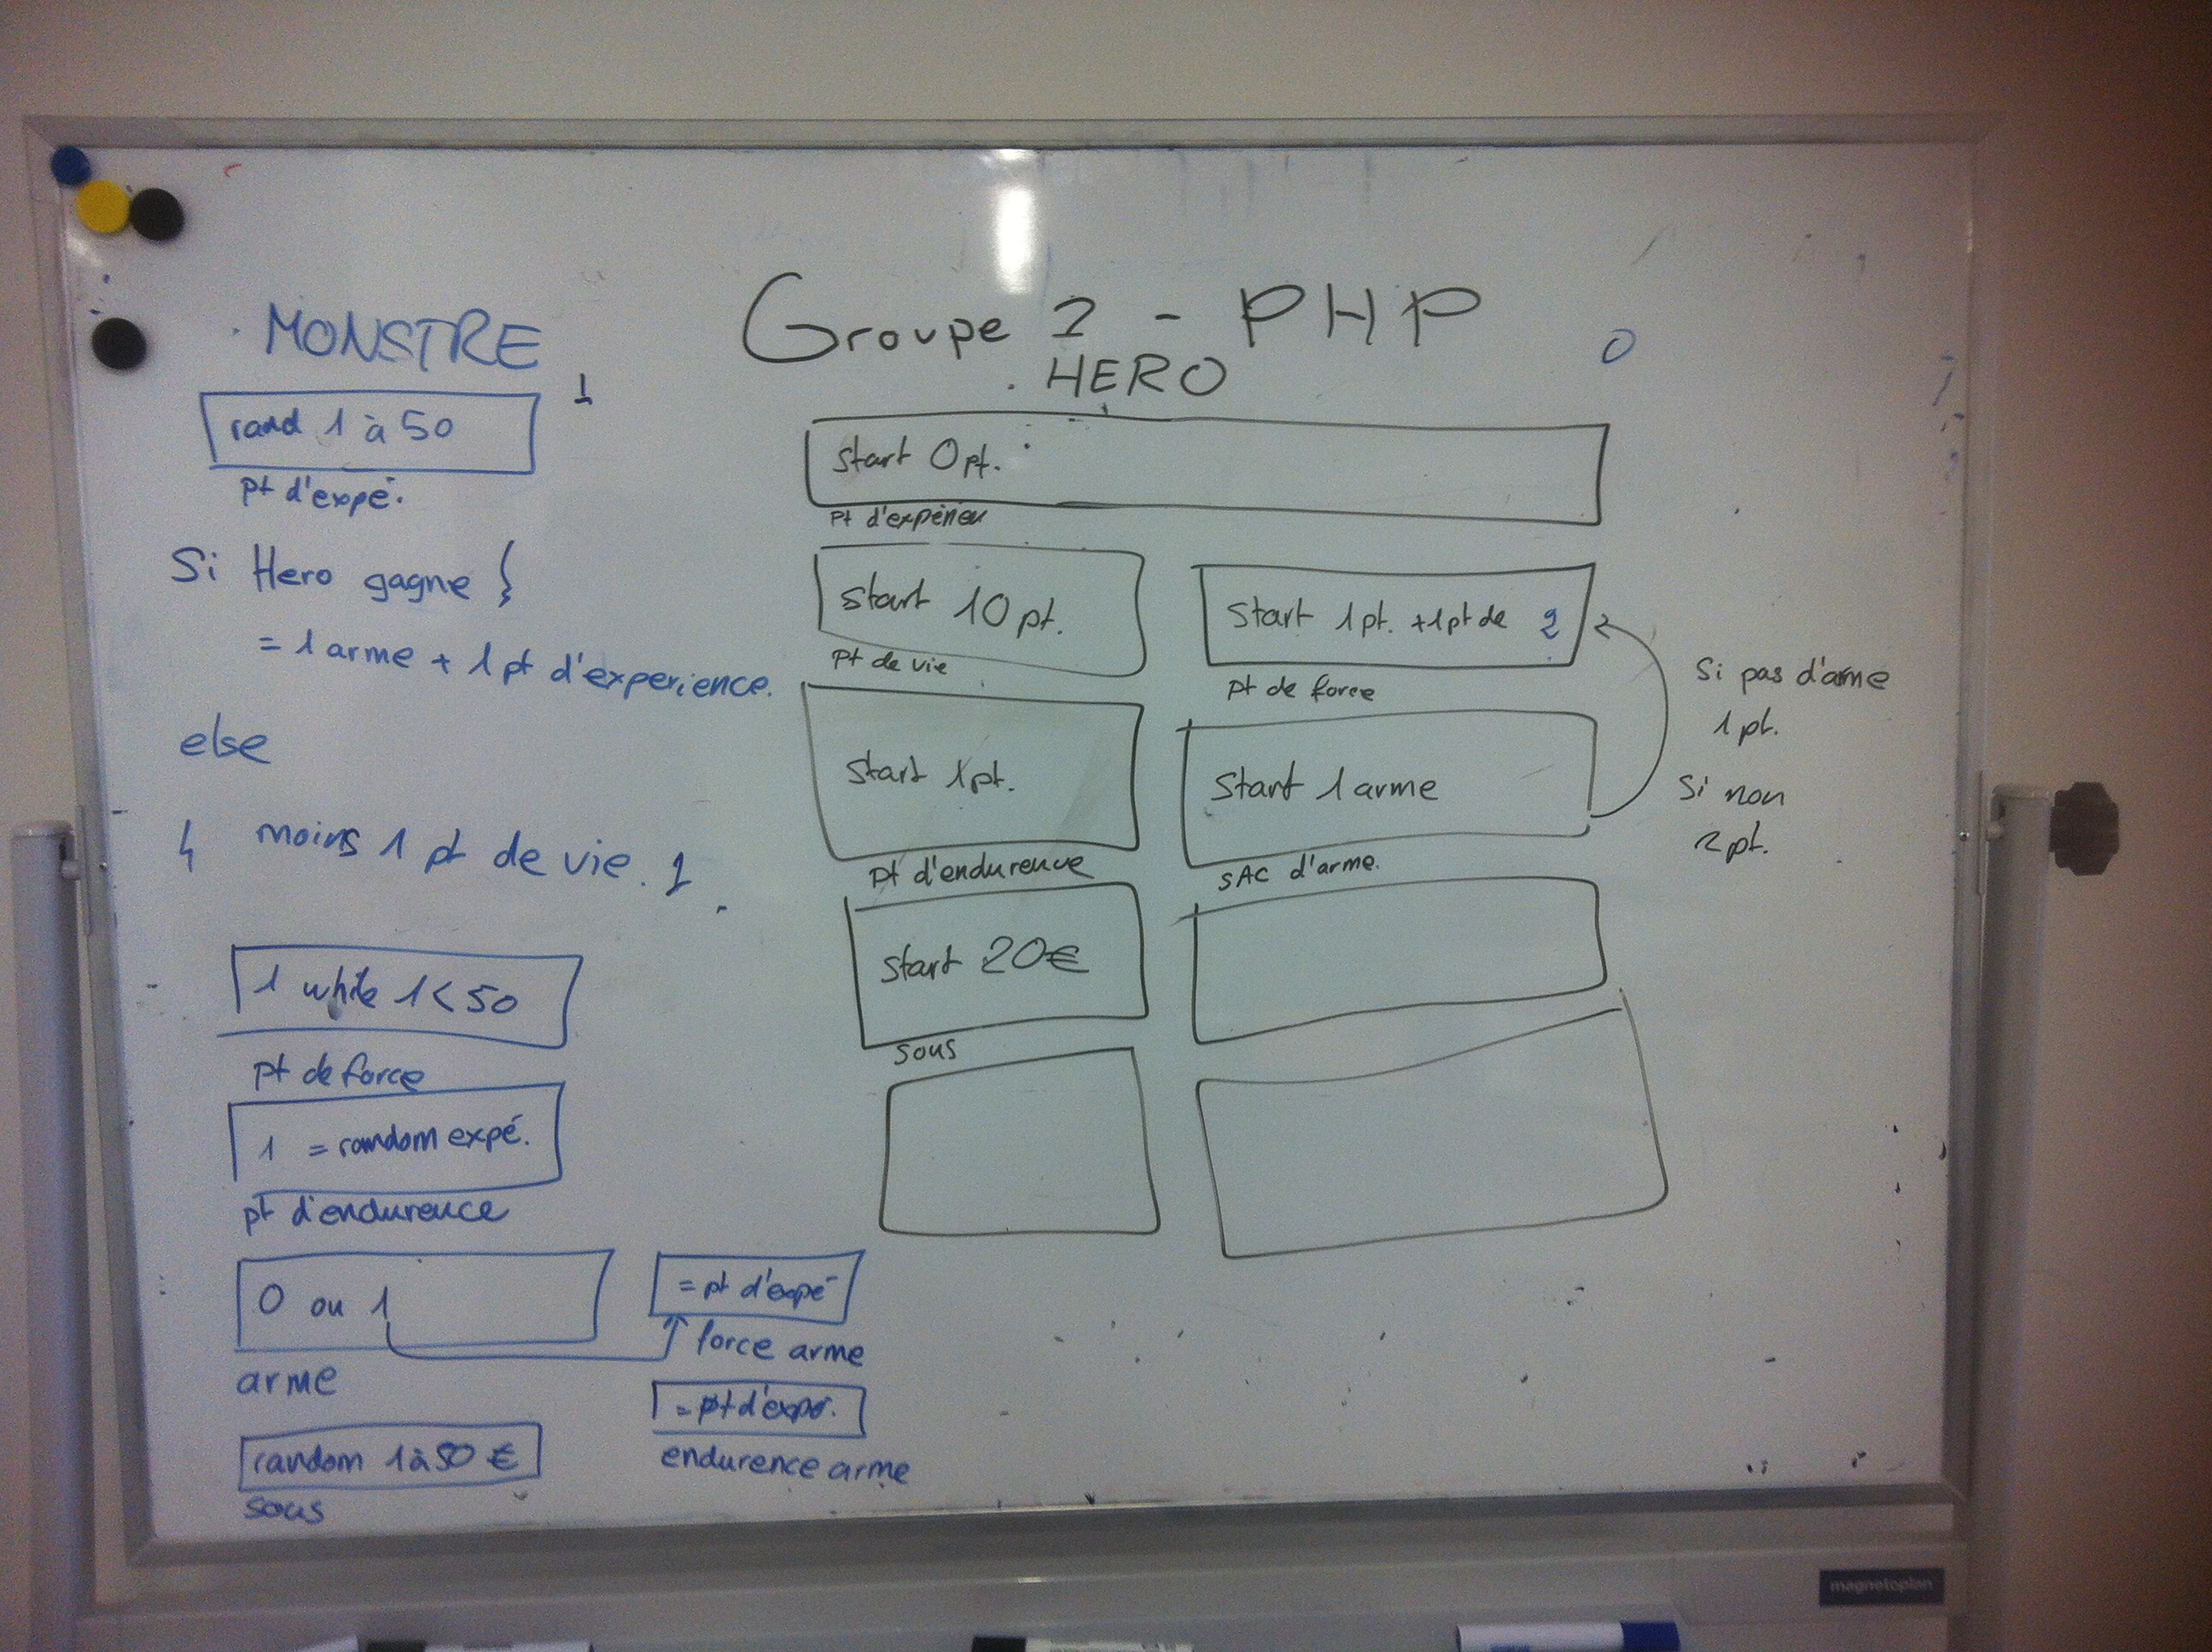 Groupe 2 - PHP
MONSTRE
rand 1 à 50
pt d'expé.
Si Hero gagne {
= 1 arme + 1 pt d'experience.
else
moins 1 pt de vie.
1 while 1 < 50
pt de force
1 = random expé.
pt d'endurence
0 ou 1
arme
= pt d'expé
force arme
= pt d'expe.
endurence arme
random 1 à 50 €
sous
HERO
start 0 pt.
pt d'expérien
start 10 pt.
pt de vie
start 1 pt. +1 pt de 2
pt de force
Si pas d'arme
1 pt.
Si non
2 pt.
start 1 pt.
pt d'endurence
start 1 arme
SAC d'arme.
start 20€
sous
magnetoplan